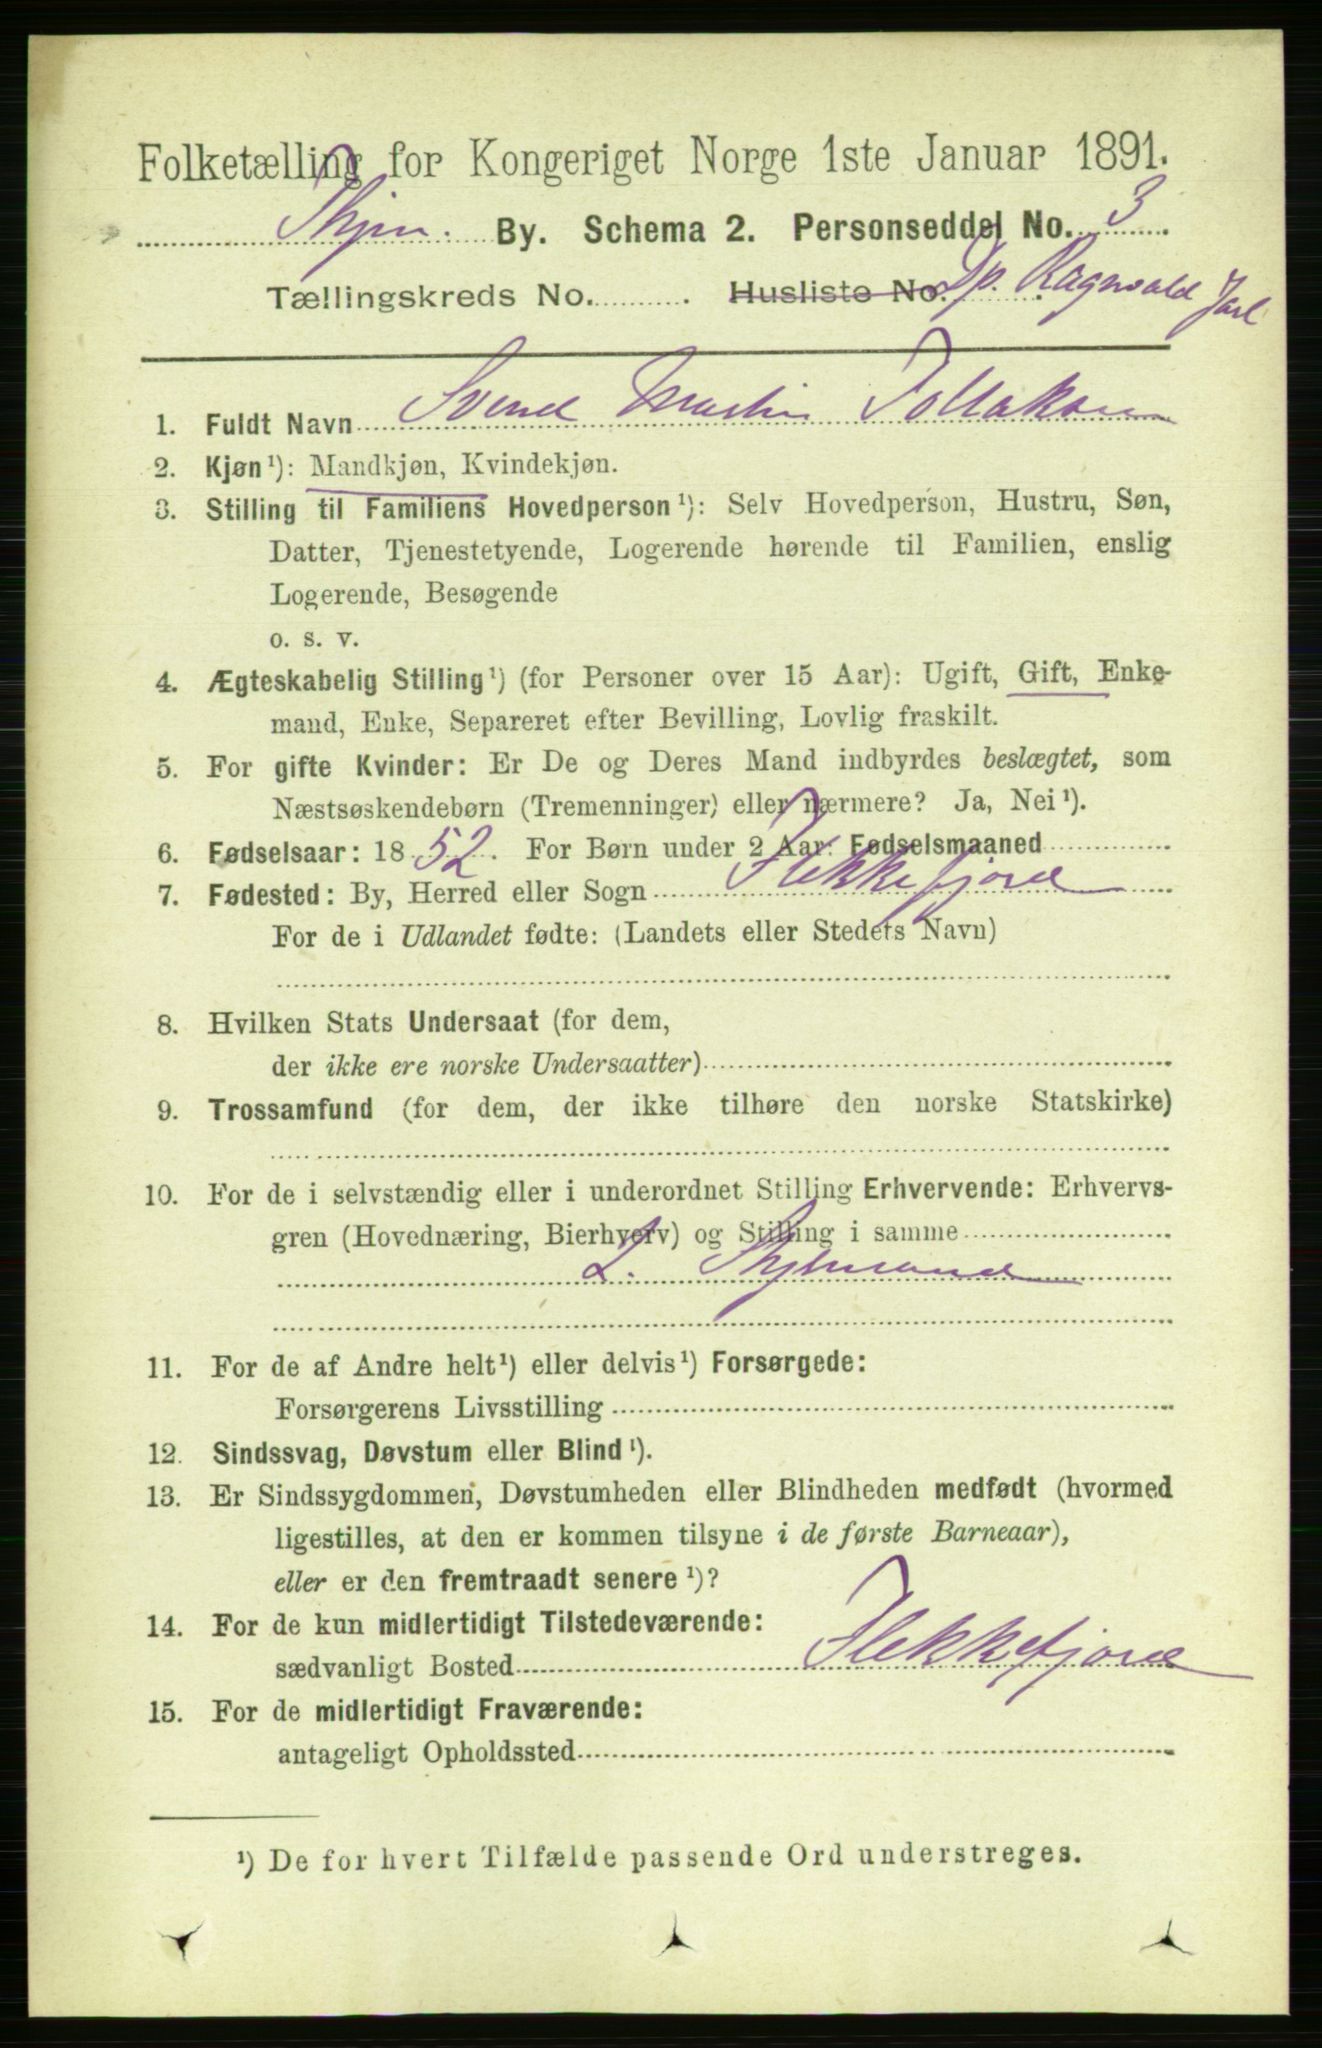 Folketælling for Kongeriget Norge 1ste Januar 1891.
Thjem. By. Schema 2. Personseddel No. 3
Tællingskreds No. . Husliste No. Dp. Ragnvald Jarl
1. Fuldt Navn Svend Martin Tollaksen
2. Kjøn ¹): Mandkjøn, Kvindekjøn.
3. Stilling til Familiens Hovedperson ¹): Selv Hovedperson, Hustru, Søn,
Datter, Tjenestetyende, Logerende hørende til Familien, enslig
Logerende, Besøgende
o. s. v.
4. Ægteskabelig Stilling ¹) (for Personer over 15 Aar): Ugift, Gift, Enke-
mand, Enke, Separeret efter Bevilling, Lovlig fraskilt.
5. For gifte Kvinder: Er De og Deres Mand indbyrdes beslægtet, som
Næstsøskendebørn (Tremenninger) eller nærmere? Ja, Nei ¹).
6. Fødselsaar: 1852. For Børn under 2 Aar: Fødselsmaaned
7. Fødested: By, Herred eller Sogn Flekkefjord
For de i Udlandet fødte: (Landets eller Stedets Navn)
8. Hvilken Stats Undersaat (for dem,
der ikke ere norske Undersaatter)
9. Trossamfund (for dem, der ikke tilhøre den norske Statskirke)
10. For de i selvstændig eller i underordnet Stilling Erhvervende: Erhvervs-
gren (Hovednæring, Bierhverv) og Stilling i samme
2. Styrmand
11. For de af Andre helt ¹) eller delvis ¹) Forsørgede:
Forsørgerens Livsstilling
12. Sindssvag, Døvstum eller Blind ¹).
13. Er Sindssygdommen, Døvstumheden eller Blindheden medfødt (hvormed
ligestilles, at den er kommen tilsyne i de første Barneaar),
eller er den fremtraadt senere ¹)?
14. For de kun midlertidigt Tilstedeværende:
sædvanligt Bosted Flekkefjord
15. For de midlertidigt Fraværende:
antageligt Opholdssted
¹) De for hvert Tilfælde passende Ord understreges.